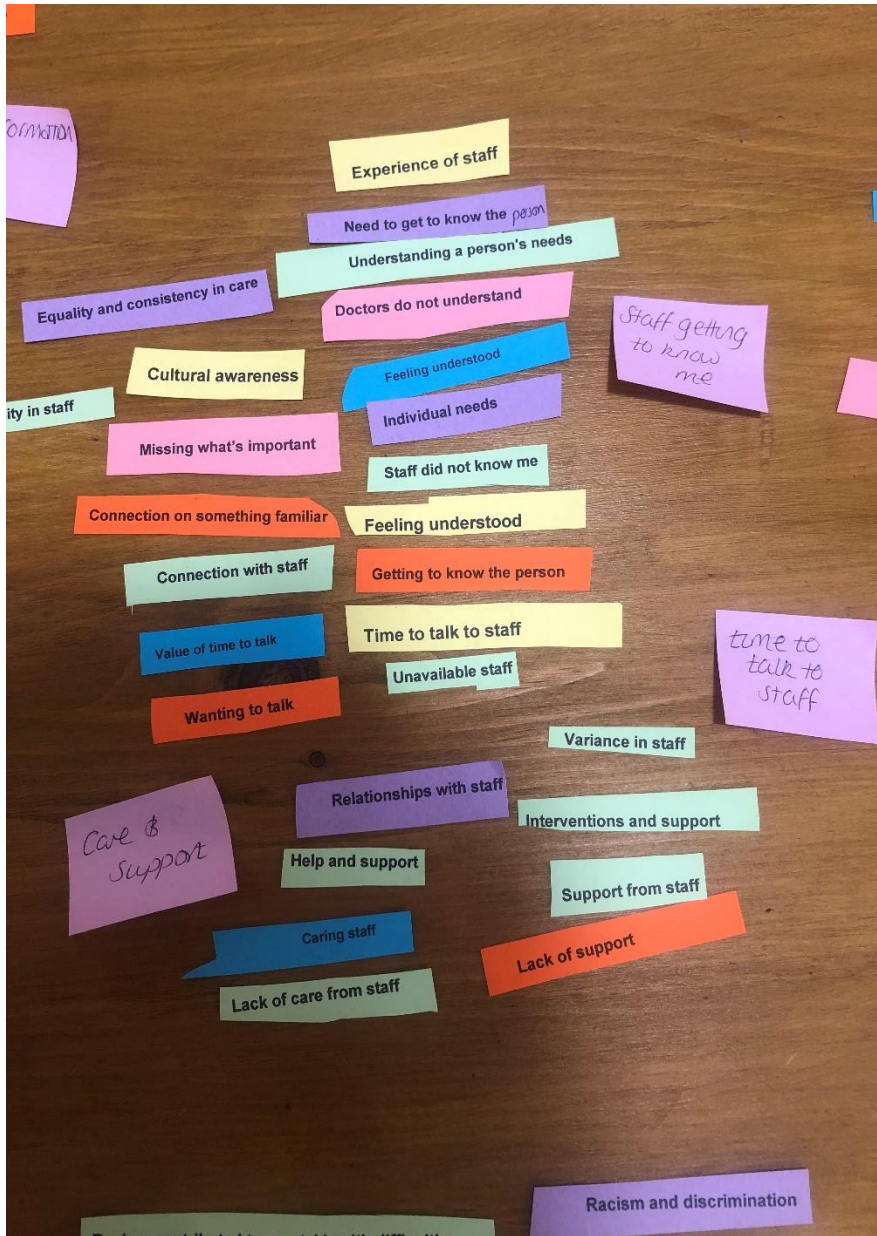 Experience of staff
Need to get to know the person
Understanding a person's needs
Equality and consistency in care
Doctors do not understand
Staff getting
to know
me
Cultural awareness
Feeling understood
ity in staff
Individual needs
Missing what's important
Staff did not know me
Connection on something familiar
Feeling understood
Connection with staff
Getting to know the person
Value of time to talk
Time to talk to staff
time to
talk to
staff
Unavailable staff
Wanting to talk
Variance in staff
Relationships with staff
Interventions and support
Care &
support
Help and support
Support from staff
Caring staff
Lack of support
Lack of care from staff
Racism and discrimination